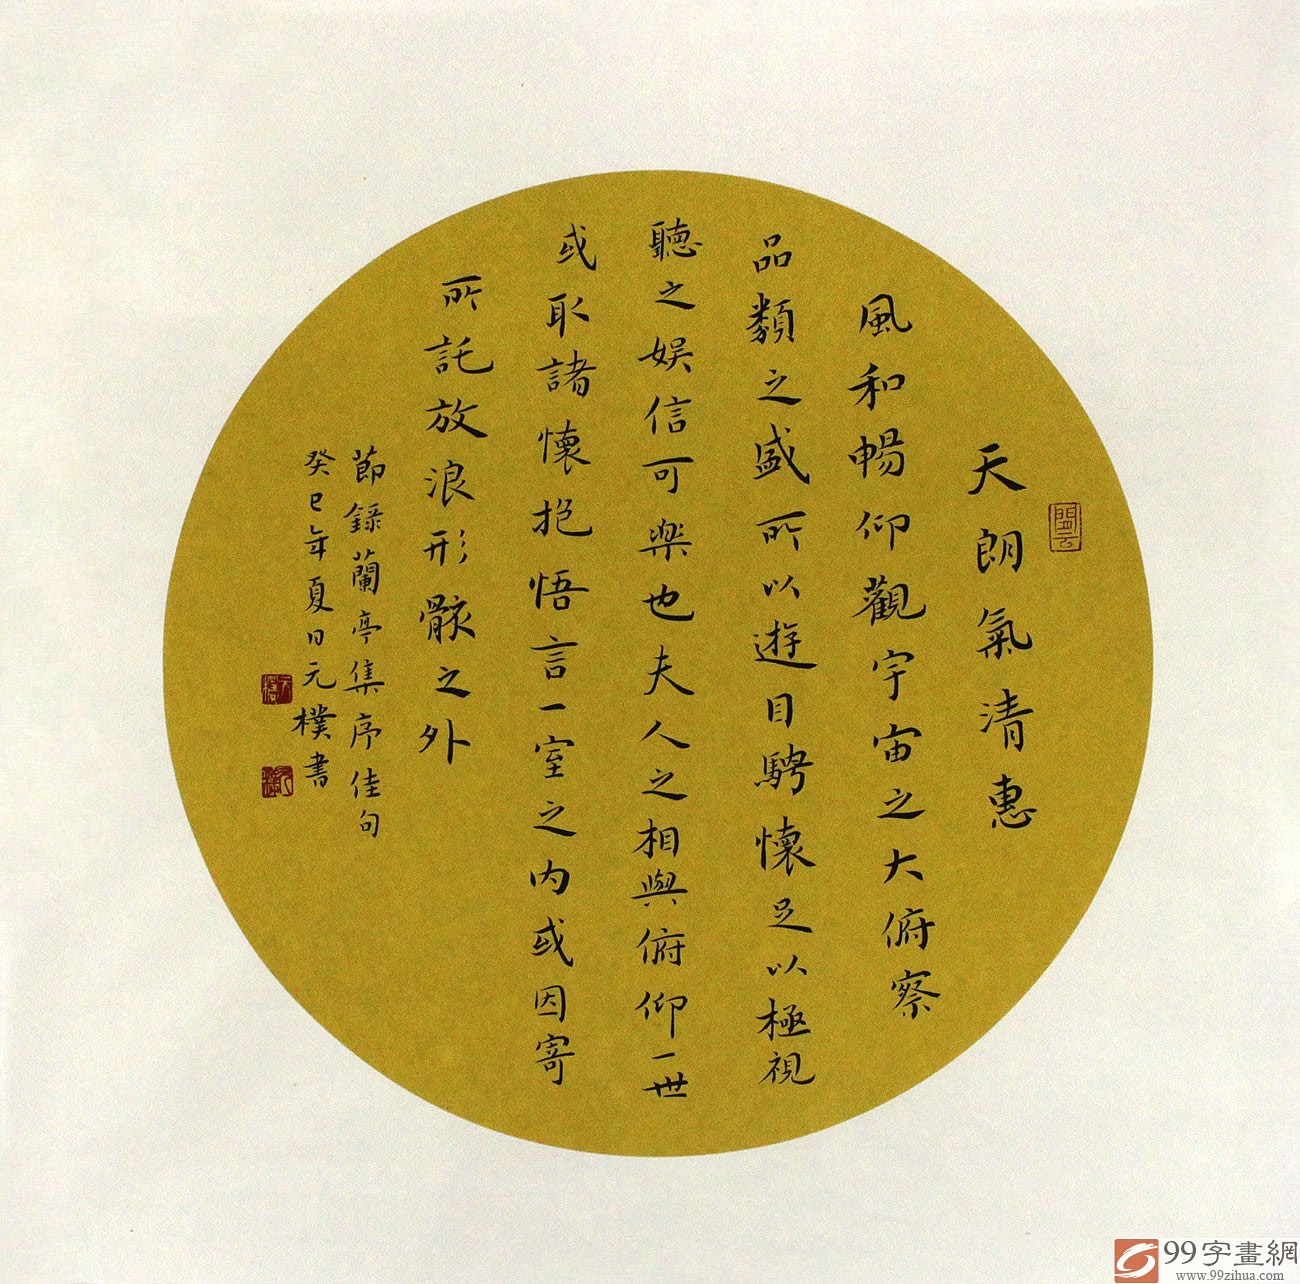 天朗氣清惠
風和暢仰觀宇宙之大俯察
品類之盛所以遊目騁懷足以極視
聽之娱信可樂也夫人之相與俯仰一世
或取諸懷抱悟言一室之内或因寄
所託放浪形骸之外
節録蘭亭集序佳句
癸巳年夏日元樸書
99字畫網
www.99zihua.com